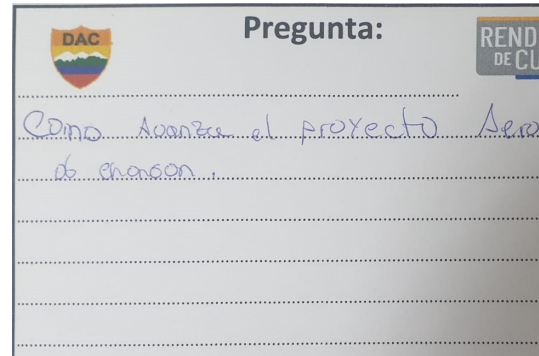 DAC
Pregunta:
REND
DE CU
Como Avanza el proyecto Aero
de